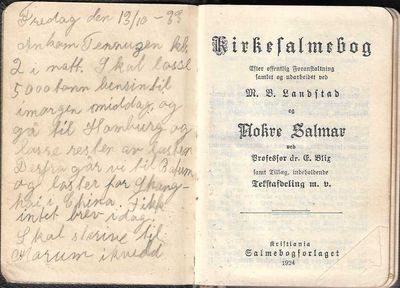 Fredag den 13/10 - 33
Ankom Tenningen kl.
2 i natt. Skal losse
5000 tonn bensin til
imorgen middag, og
gå til Hamburg og
losse resten av lasten
Derfra går vi til Batum
og laster for Shang-
hai i China. Fikk
intet brev idag.
Skal skrive til
Marum ikveld
Kirkesalmebog
Efter offentlig Foranstaltning
samlet og udarbeidet ved
M. B. Landstad
og
Nokre Salmar
ved
Professor dr. E. Blix
samt Tillæg, indeholdende
Tekstafdeling m. v.
Kristiania
Salmebogforlaget
1924